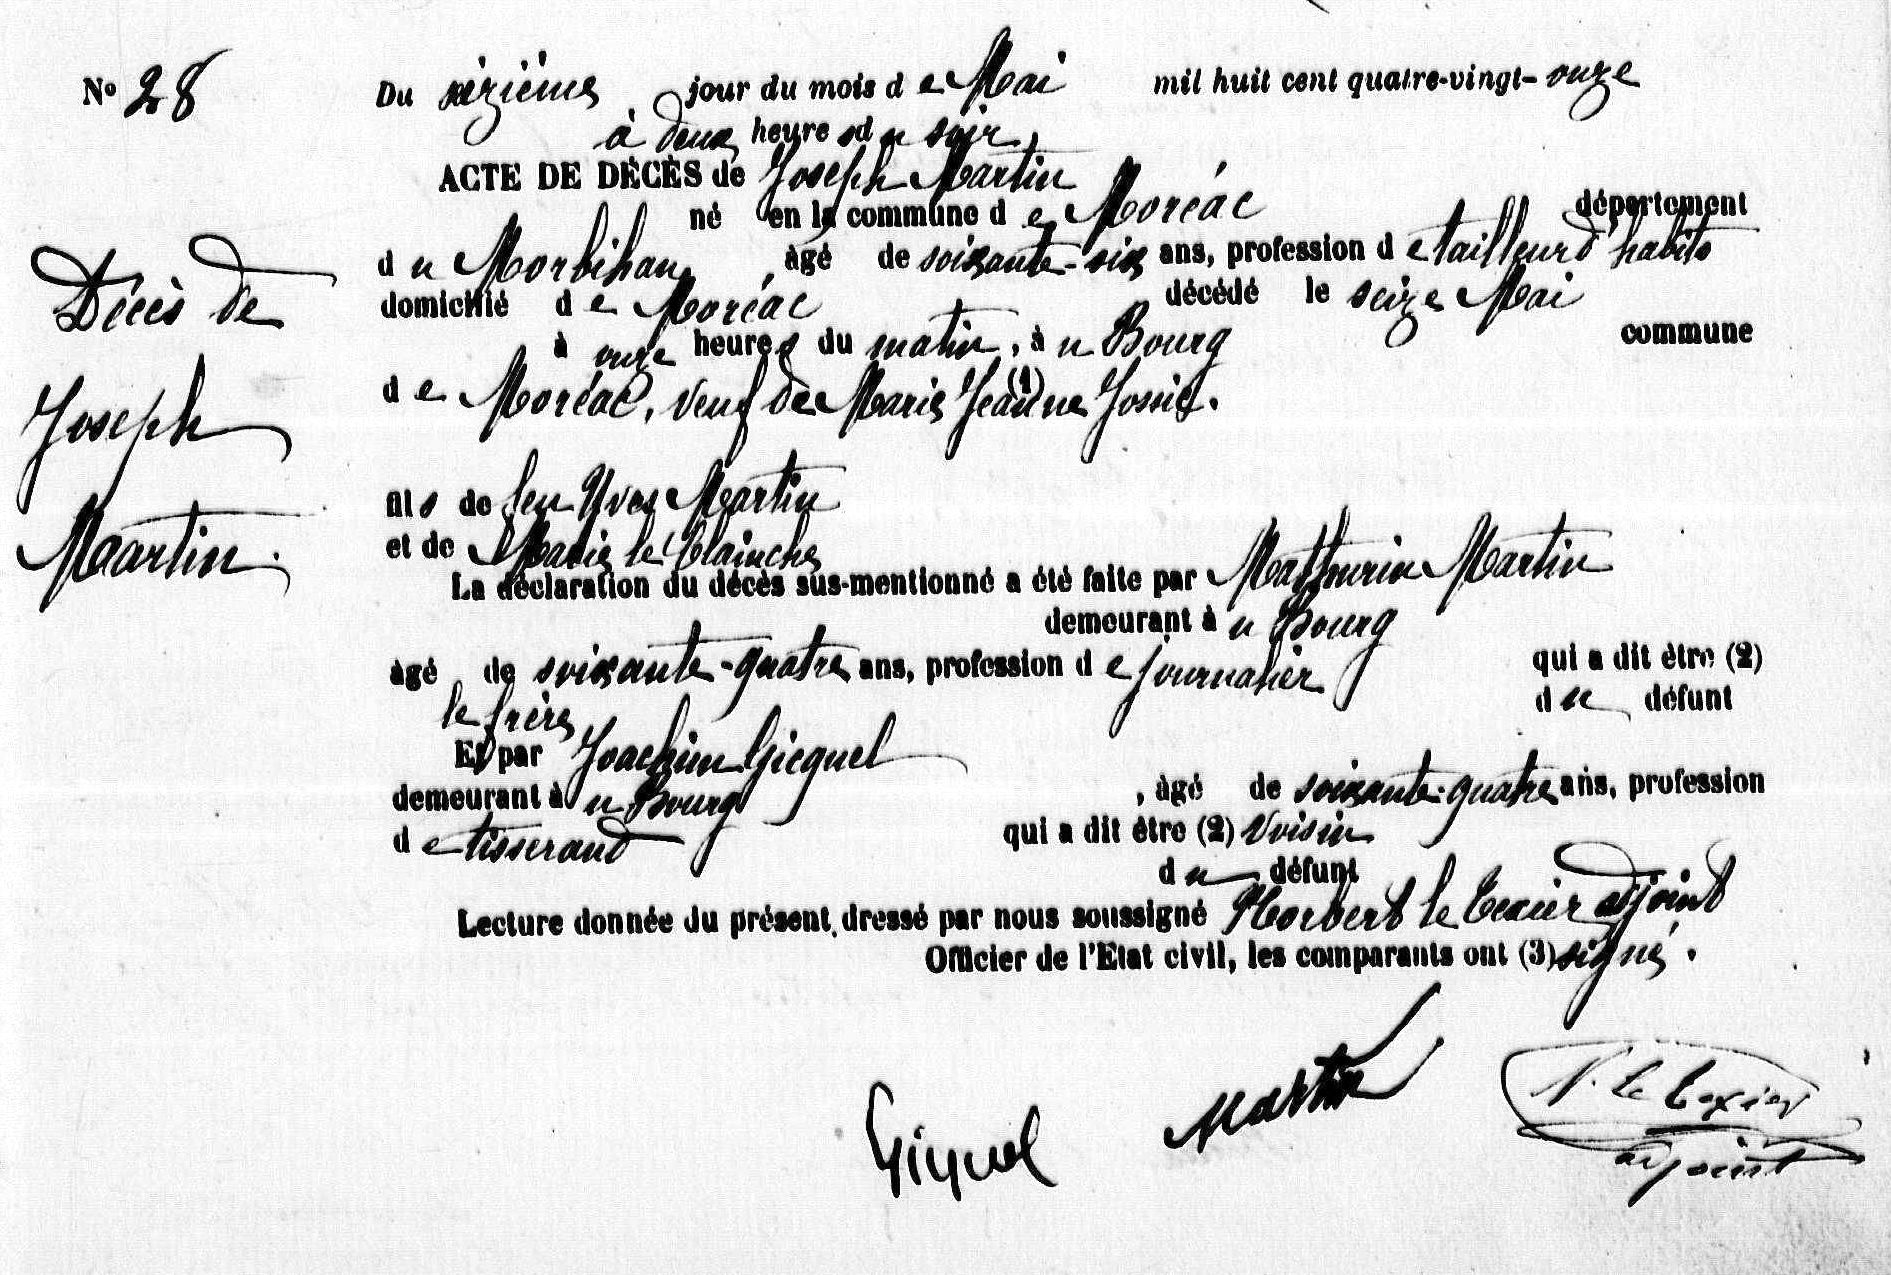 N° 28
Du seizième jour du mois de Mai mil huit cent quatre-vingt-onze
à deux heures du soir,
ACTE DE DÉCÈS de Joseph Martin
né en la commune de Moréac département
du Morbihan, âgé de soixante-six ans, profession de tailleur d'habits
domicilié de Moréac décédé le seize Mai
à onze heures du matin, au Bourg commune
de Moréac, veuf de Marie Jeanne Jossic. (1)
fils de feu Yves Martin
et de Marie le Clainche
La déclaration du décès sus-mentionné a été faite par Mathurin Martin
demeurant au Bourg
âgé de soixante-quatre ans, profession de journalier qui a dit être (2)
le frère du défunt
Et par Joachim Gicquel
demeurant au Bourg, âgé de soixante-quatre ans, profession
de tisserand qui a dit être (2) voisin
du défunt
Lecture donnée du présent, dressé par nous soussigné Norbert le Texier adjoint
Officier de l'Etat civil, les comparants ont (3) signé.
Décès de
Joseph
Martin.
Gicquel Martin N. Le Texier
adjoint